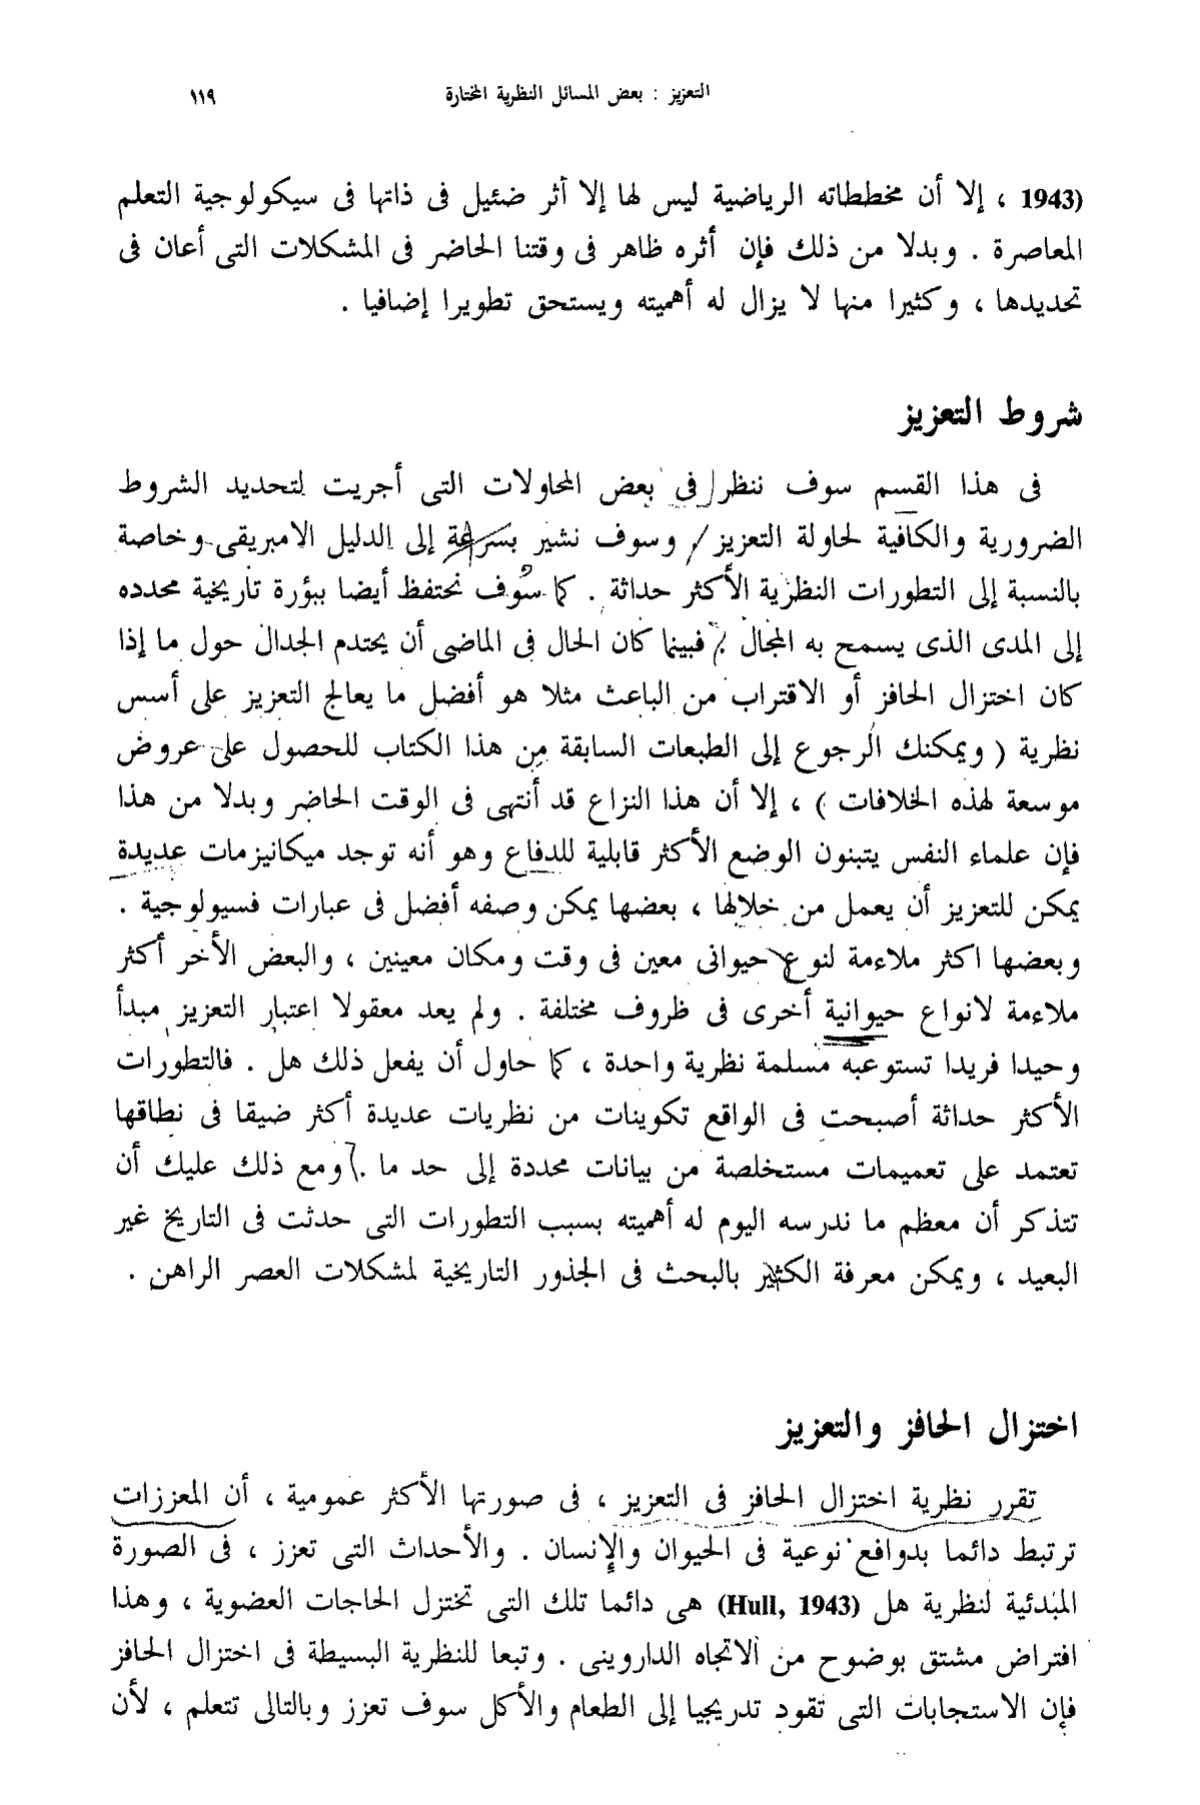 التعزيز : بعض المسائل النظرية المختارة ١١٩
(1943 ، إلا أن مخططاته الرياضية ليس لها إلا أثر ضئيل فى ذاتها فى سيكولوجية التعلم
المعاصرة . وبدلا من ذلك فإن أثره ظاهر فى وقتنا الحاضر فى المشكلات التى أعان فى
تحديدها ، وكثيرا منها لا يزال له أهميته ويستحق تطويرا إضافيا .
شروط التعزيز
فى هذا القسم سوف ننظر فى بعض المحاولات التى أجريت لتحديد الشروط
الضرورية والكافية لحاولة التعزيز / وسوف نشير بسرعة إلى الدليل الامبريقى وخاصة
بالنسبة إلى التطورات النظرية الأكثر حداثة . كما سوف نحتفظ أيضا ببؤرة تاريخية محدده
إلى المدى الذى يسمح به المجال . فبينما كان الحال فى الماضى أن يحتدم الجدال حول ما إذا
كان اختزال الحافز أو الاقتراب من الباعث مثلا هو أفضل ما يعالج التعزيز على أسس
نظرية ( ويمكنك الرجوع إلى الطبعات السابقة من هذا الكتاب للحصول على عروض
موسعة لهذه الخلافات ) ، إلا أن هذا النزاع قد أنتهى فى الوقت الحاضر وبدلا من هذا
فإن علماء النفس يتبنون الوضع الأكثر قابلية للدفاع وهو أنه توجد ميكانيزمات عديدة
يمكن للتعزيز أن يعمل من خلالها ، بعضها يمكن وصفه أفضل فى عبارات فسيولوجية .
وبعضها اكثر ملاءمة لنوع حيوانى معين فى وقت ومكان معينين ، والبعض الأخر أكثر
ملاءمة لانواع حيوانية أخرى فى ظروف مختلفة . ولم يعد معقولا اعتبار التعزيز مبدأ
وحيدا فريدا تستوعبه مسلمة نظرية واحدة ، كما حاول أن يفعل ذلك هل . فالتطورات
الأكثر حداثة أصبحت فى الواقع تكوينات من نظريات عديدة أكثر ضيقا فى نطاقها
تعتمد على تعميمات مستخلصة من بيانات محددة إلى حد ما . ومع ذلك عليك أن
تتذكر أن معظم ما ندرسه اليوم له أهميته بسبب التطورات التى حدثت فى التاريخ غير
البعيد ، ويمكن معرفة الكثير بالبحث فى الجذور التاريخية لمشكلات العصر الراهن .
اختزال الحافز والتعزيز
تقرر نظرية اختزال الحافز فى التعزيز ، فى صورتها الأكثر عمومية ، أن المعززات
ترتبط دائما بدوافع نوعية فى الحيوان والإنسان . والأحداث التى تعزز ، فى الصورة
المبدئية لنظرية هل (Hull, 1943) هى دائما تلك التى تختزل الحاجات العضوية ، وهذا
افتراض مشتق بوضوح من الاتجاه الداروينى . وتبعا للنظرية البسيطة فى اختزال الحافز
فإن الاستجابات التى تقود تدريجيا إلى الطعام والأكل سوف تعزز وبالتالى تتعلم ، لأن